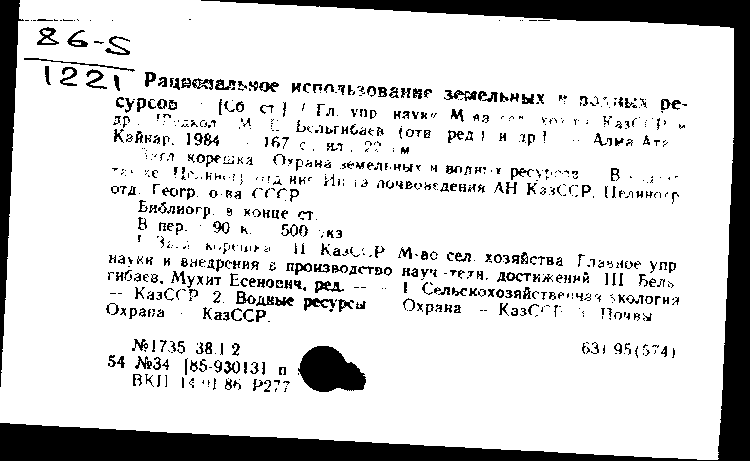 86-5
1221 Рациональное использование земельных и водных ре-
сурсов [Сб. ст.] / Гл. упр. науки М-ва сел. хоз-ва КазССР и
др. [Редкол. М. Е. Бельгибаев (отв. ред.) и др.] — Алма-Ата
Кайнар, 1984 — 167 с. ил. 22 см
Загл. корешка Охрана земельных и водных ресурсов В
также Целиногр. отд-ние Ин-та почвоведения АН КазССР, Целиногр.
отд. Геогр. о-ва СССР
Библиогр. в конце ст.
В пер. 90 к. 500 экз
I Загл. корешка II КазССР М-во сел. хозяйства Главное упр
науки и внедрения в производство науч.-техн. достижений III Бель-
гибаев, Мухит Есенович, ред. — — 1 Сельскохозяйственная экология
— КазССР 2. Водные ресурсы Охрана — КазССР 3 Почвы
Охрана — КазССР.
№1735 38.1 2 631 95(574)
54 №34 [85-93013] п
ВКП 14 01 86 Р277